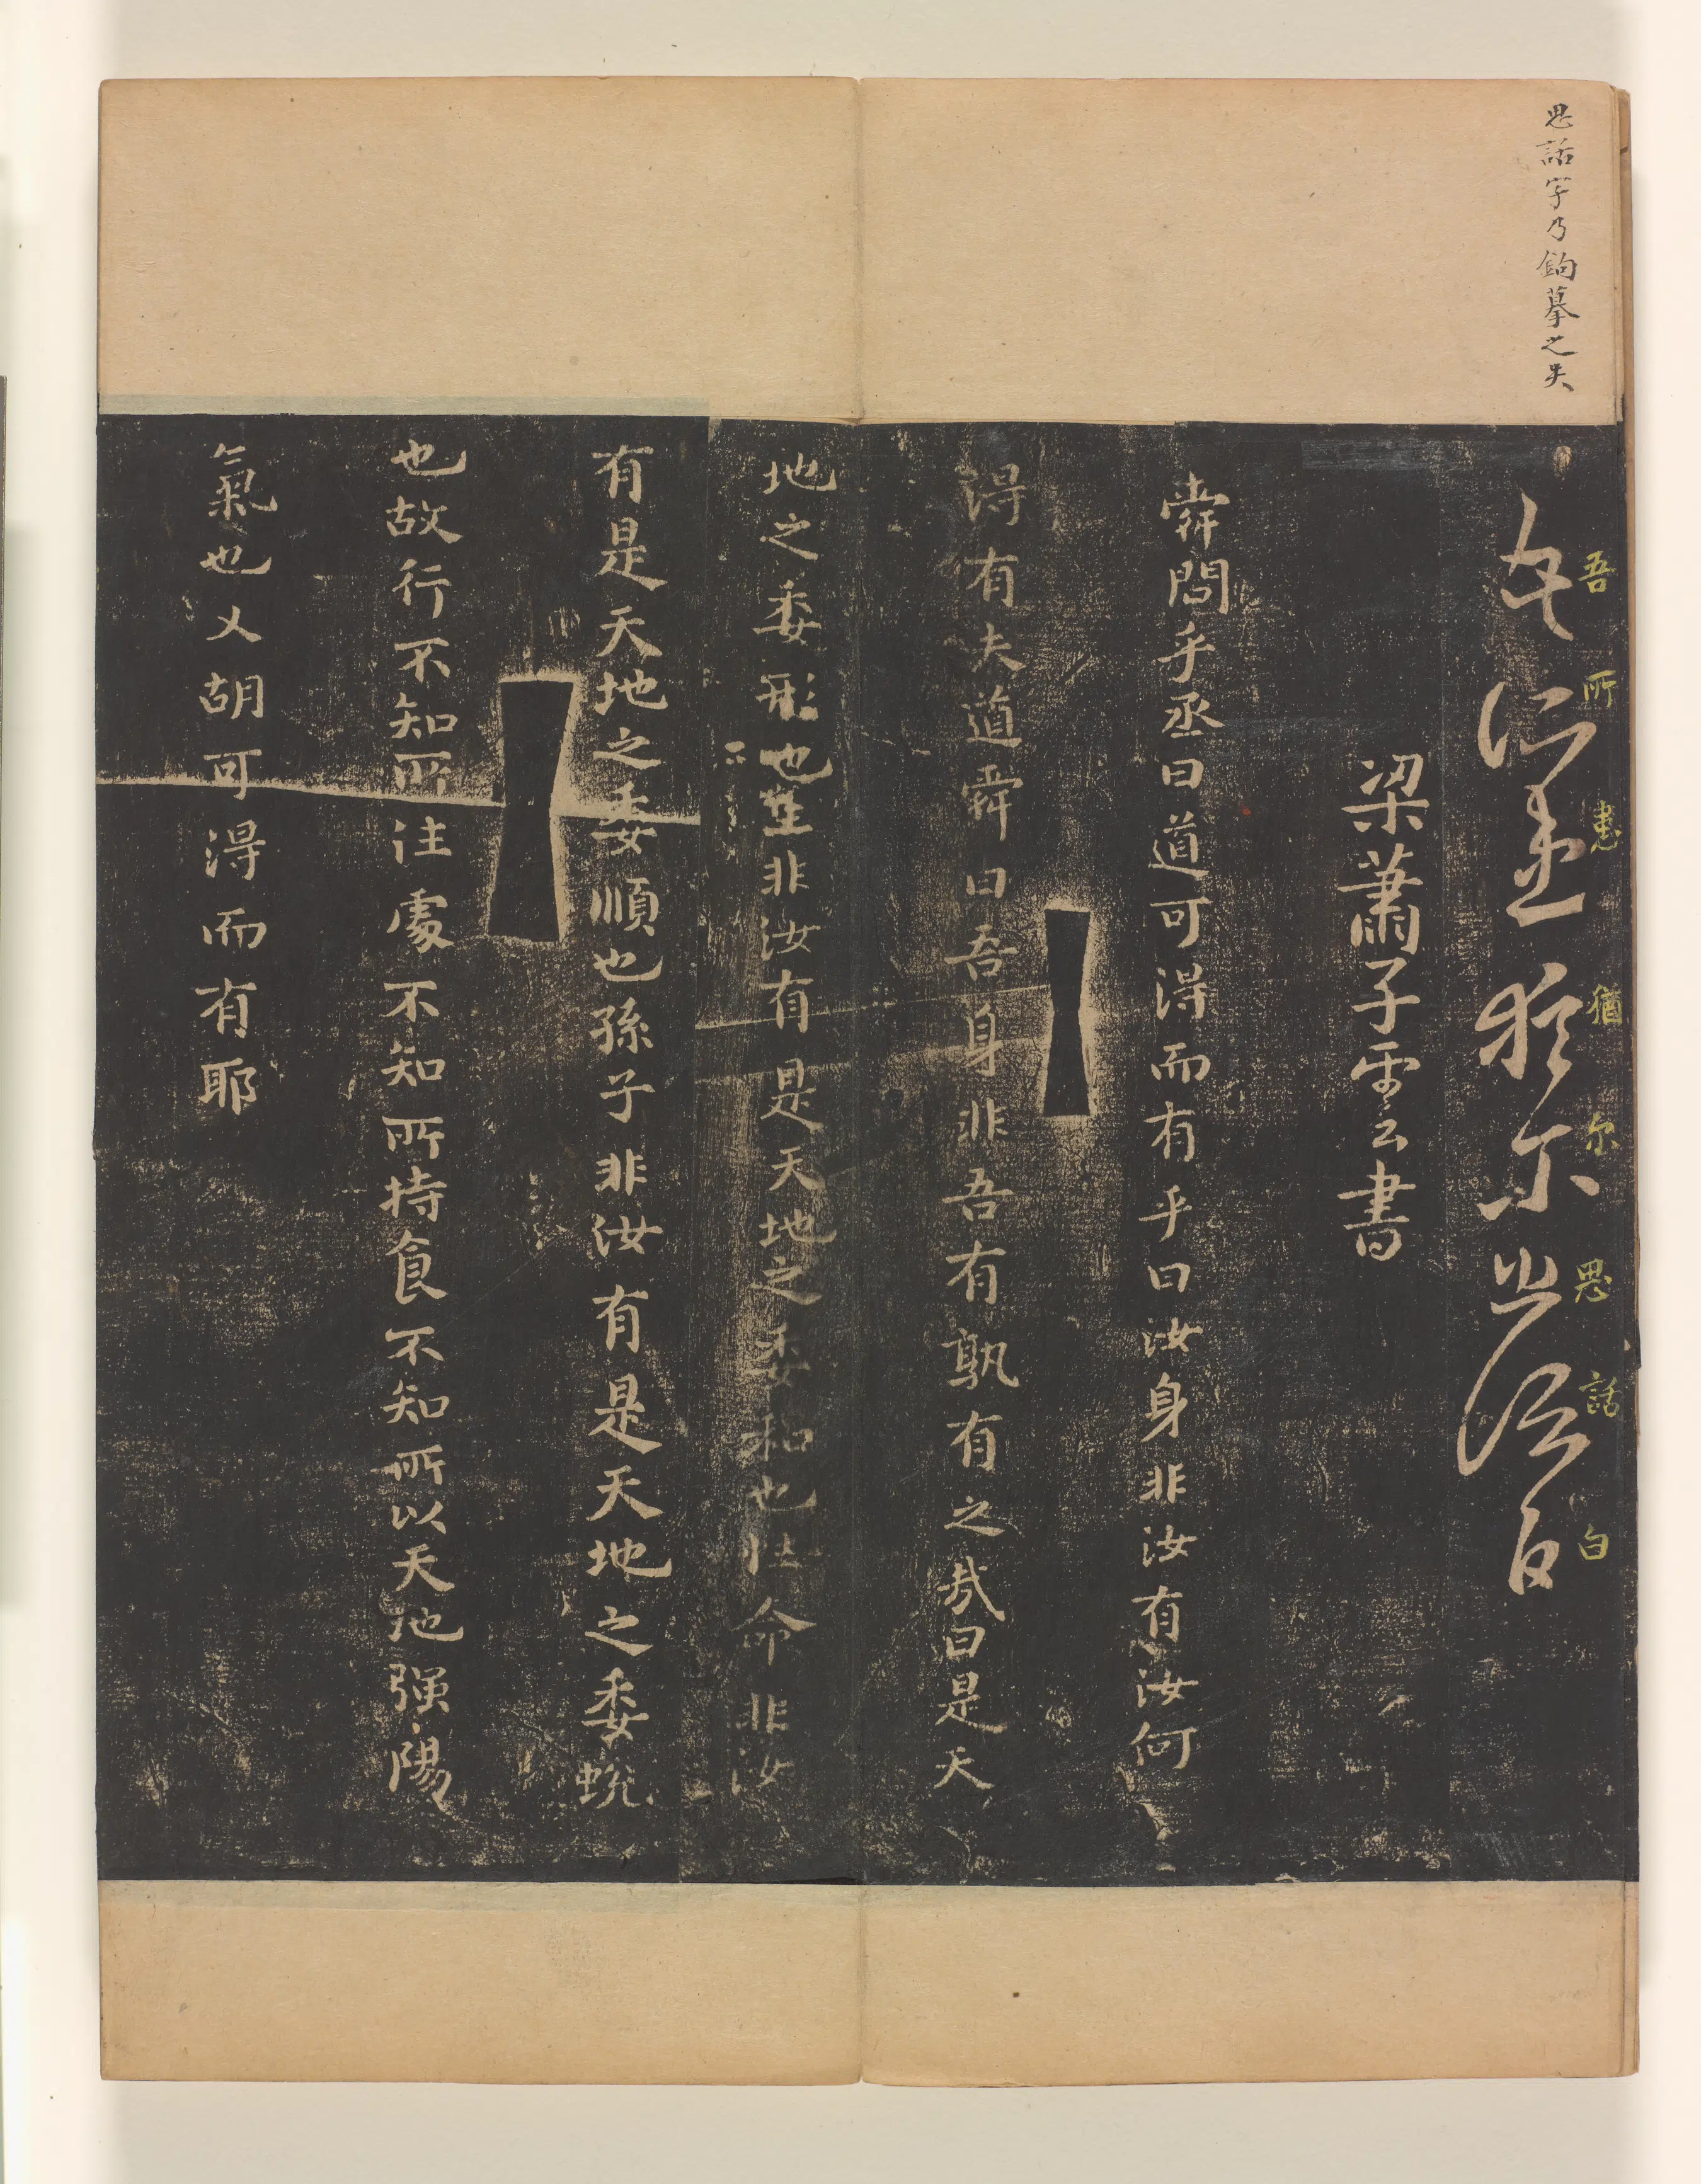 思話字乃鉤摹之失
吾所患猶尔思話白
吾所患猶尔思話白
梁蕭子雲書
舜問乎丞曰道可得而有乎曰汝身非汝有汝何
得有夫道舜曰吾身非吾有孰有之哉曰是天
地之委形也生非汝有是天地之委和也性命非汝
有是天地之委順也孫子非汝有是天地之委蛻
也故行不知所往處不知所持食不知所以天地强陽
氣也又胡可得而有耶